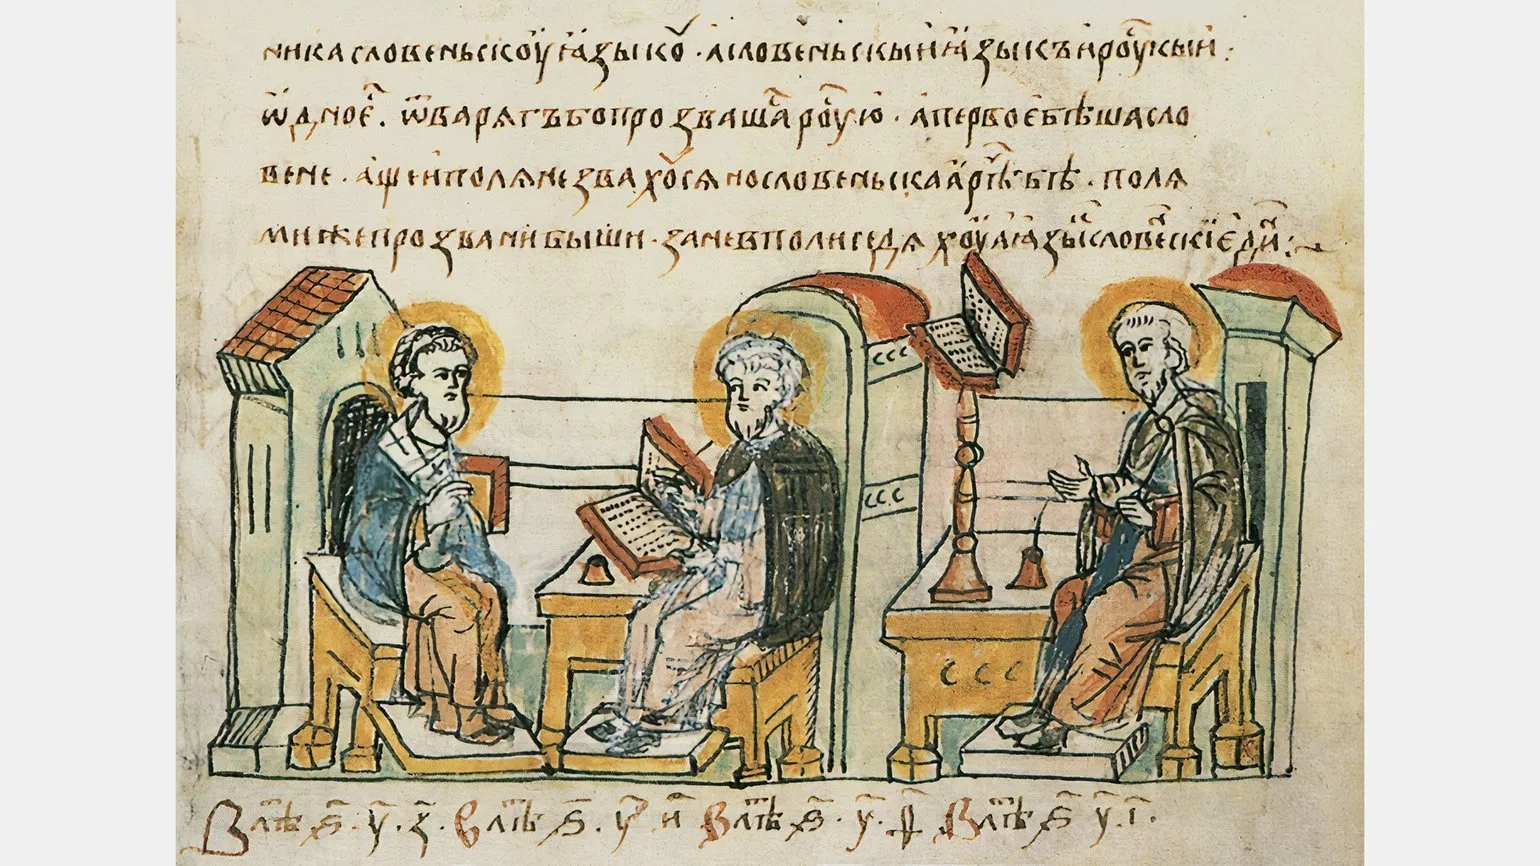 ника словеньскоу ꙗзыкꙋ · а словеньскыи ꙗзыкъ и роускыи :
ѿдно е҇ . ѿ варягъ бо прозвашас роусью · а первое бѣша сло
вене · аще и поляне звахꙋся но словеньскаа рѣ҇ бѣ · поля
ми же прозвани быши · зане в поли седяхоу а ꙗзы словенскі еди :
В лѣ҇ ѕ҃ · у҃ · з҃ · В лѣ҇ ѕ҃ · у҃ и҃ В лѣ҇ ѕ҃ · у҃ · ѳ҃ В лѣ҇ ѕ҃ у҃ · і҃ ·